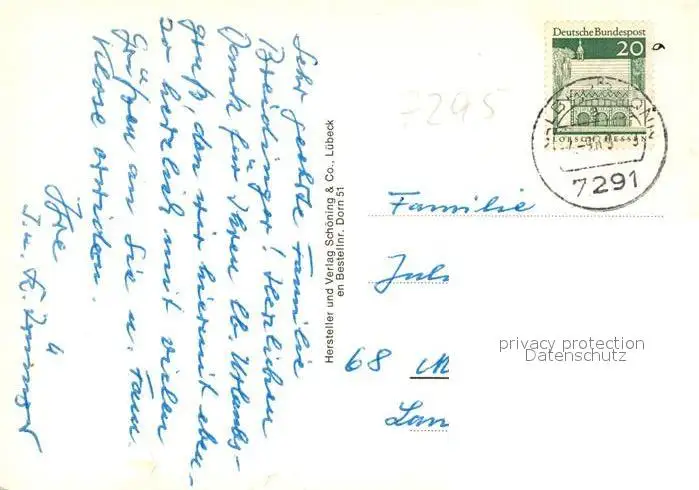 Sehr geehrte Familie
Breidinger! Herzlichen
Dank für Ihren lb. Urlaubs-
gruß, den wir hiermit eben-
so herzlich mit vielen
Grüßen an Sie u. Fam.
Klose erwidern.
Ihre
Hersteller und Verlag Schöning & Co., Lübeck
en Bestellnr. Dorn 51
7295
Deutsche Bundespost
20
LORSCH HESSEN
7291
Familie
Juli
68 M
Lan
privacy protection
Datenschutz